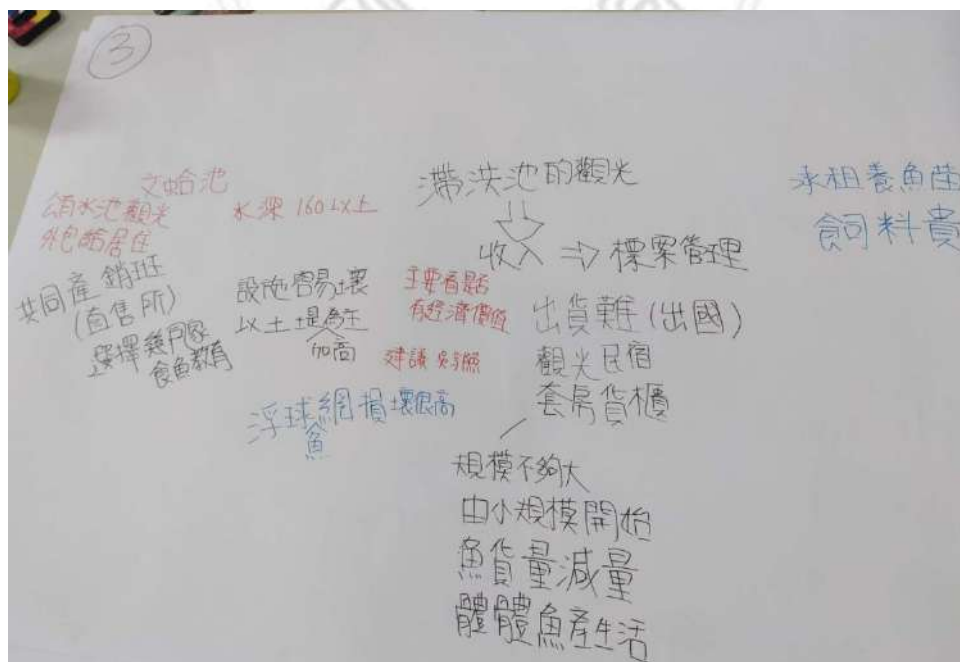 ③
文蛤池
水池觀光
外包 居住
共同產銷班
(直售所)
選擇幾戶家
食魚教育
水深 160以上
設施容易壞
以土堤為主
加高
主要看是否
有經濟價值
建議
浮球網損壞很高
魚
滯洪池的觀光
收入 ⇒ 標案管理
出貨難(出國)
觀光民宿
套房貨櫃
規模不夠大
由小規模開始
魚貨量減量
體體魚產生活
承租養魚
飼料貴